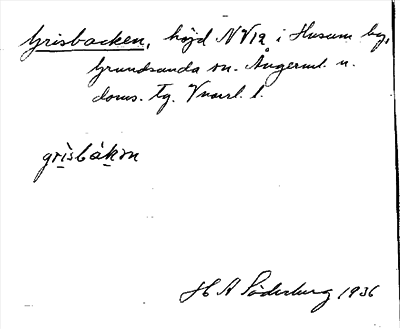 Grisbacken, höjd NV12 i Husum by,
Grundsunda sn. Ångerml. n.
doms. tg. Vnorrl. l.
grìsbákɘn
H A Söderberg 1936